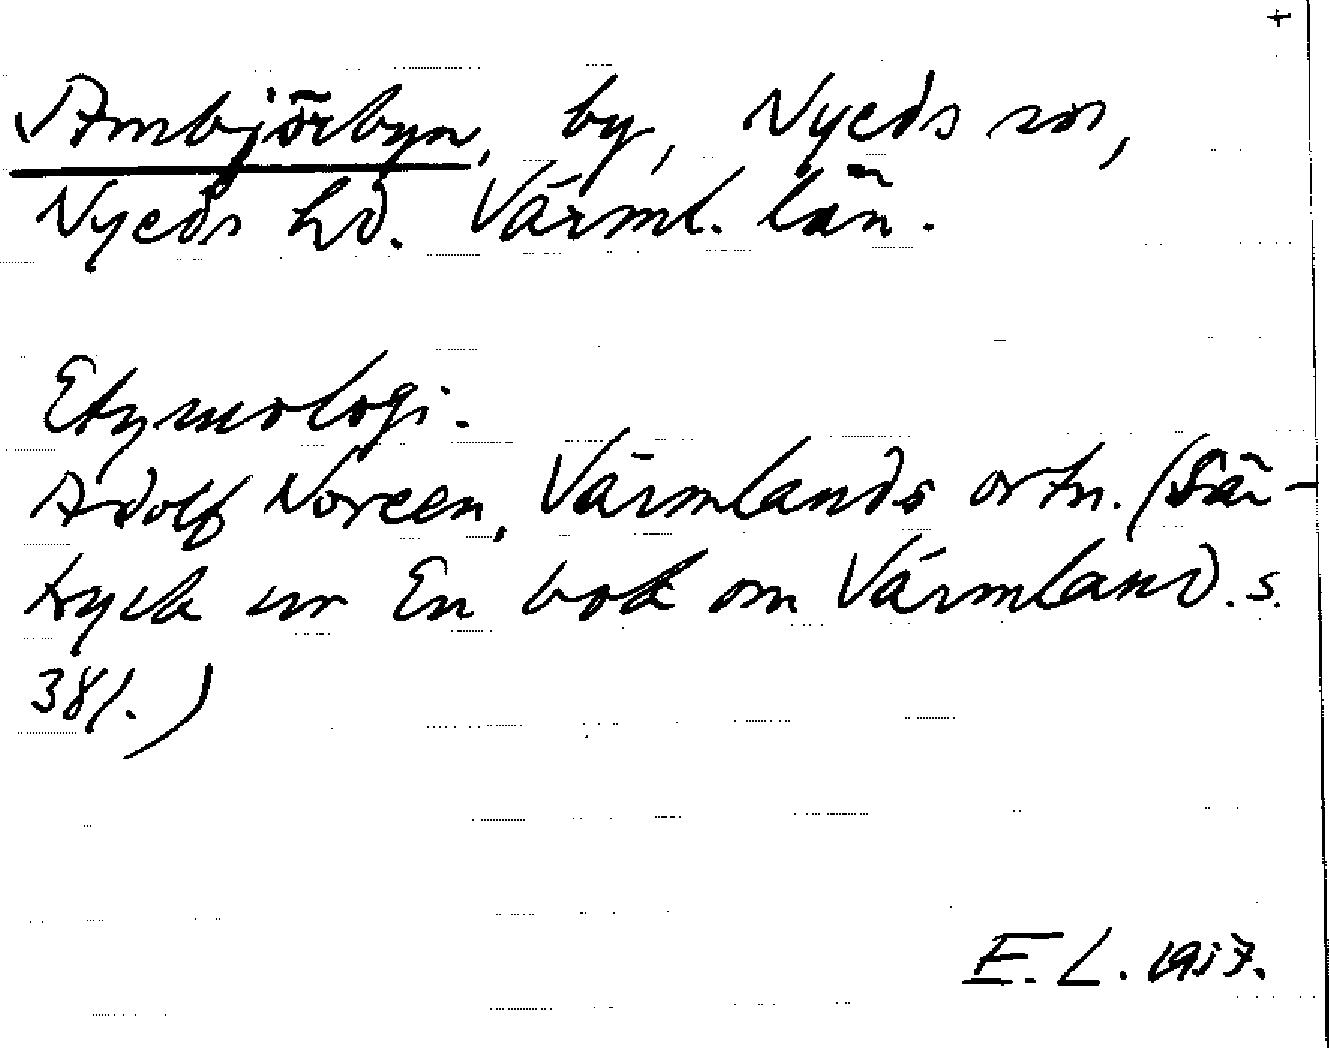 +
Ambjörbyn, by, Nyeds sn,
Nyeds hd. Värml. län.
Etymologi.
Adolf Noreen, Värmlands ortn. (Sär-
tryck ur En bok om Värmland. s.
38/.)
E. L. 1957.